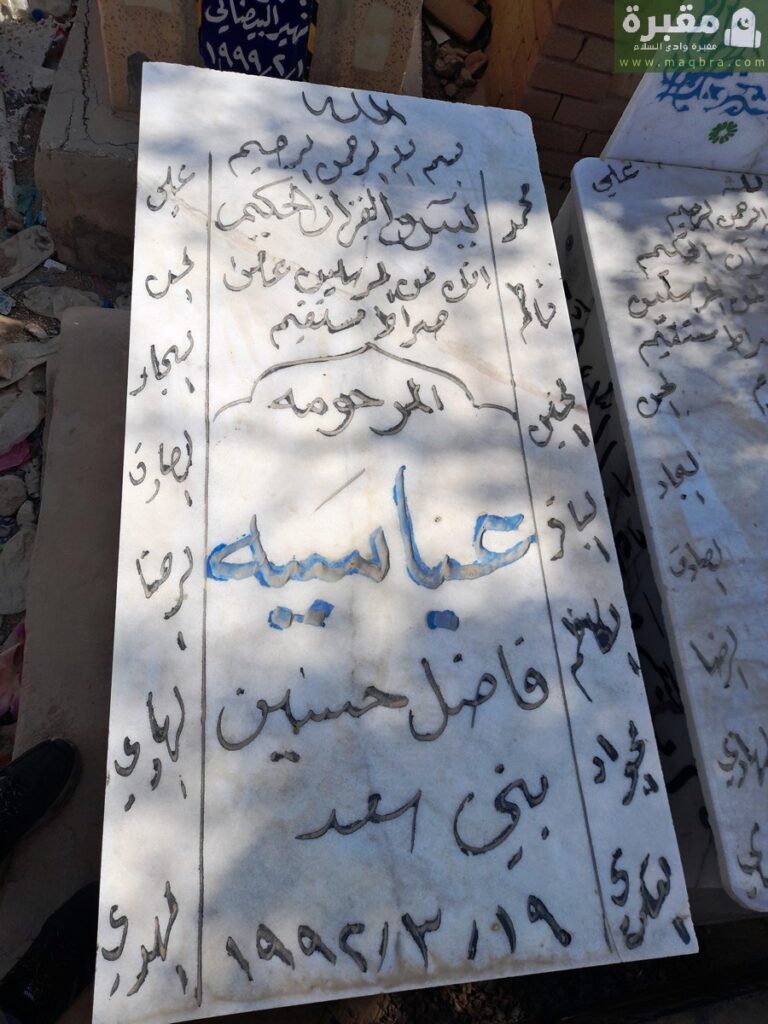 مقبرة
مقبرة وادي السلام
www.maqbra.com
زهير البيضاني
١٩٩٩/٢/١
الله
بسم الله الرحمن الرحيم
يس والقرآن الحكيم
انك لمن المرسلين على
صراط مستقيم
المرحومه
عباسيه
فاضل حسين
بني سعد
١٩٩٢/٣/١٩
محمد
فاطمة
الحسين
الباقر
الكاظم
الجواد
العسكري
علي
الحسن
السجاد
الصادق
الرضا
الهادي
المهدي
علي
الرحمن الرحيم
صراط مستقيم
الحسن
السجاد
الصادق
الرضا
الهادي